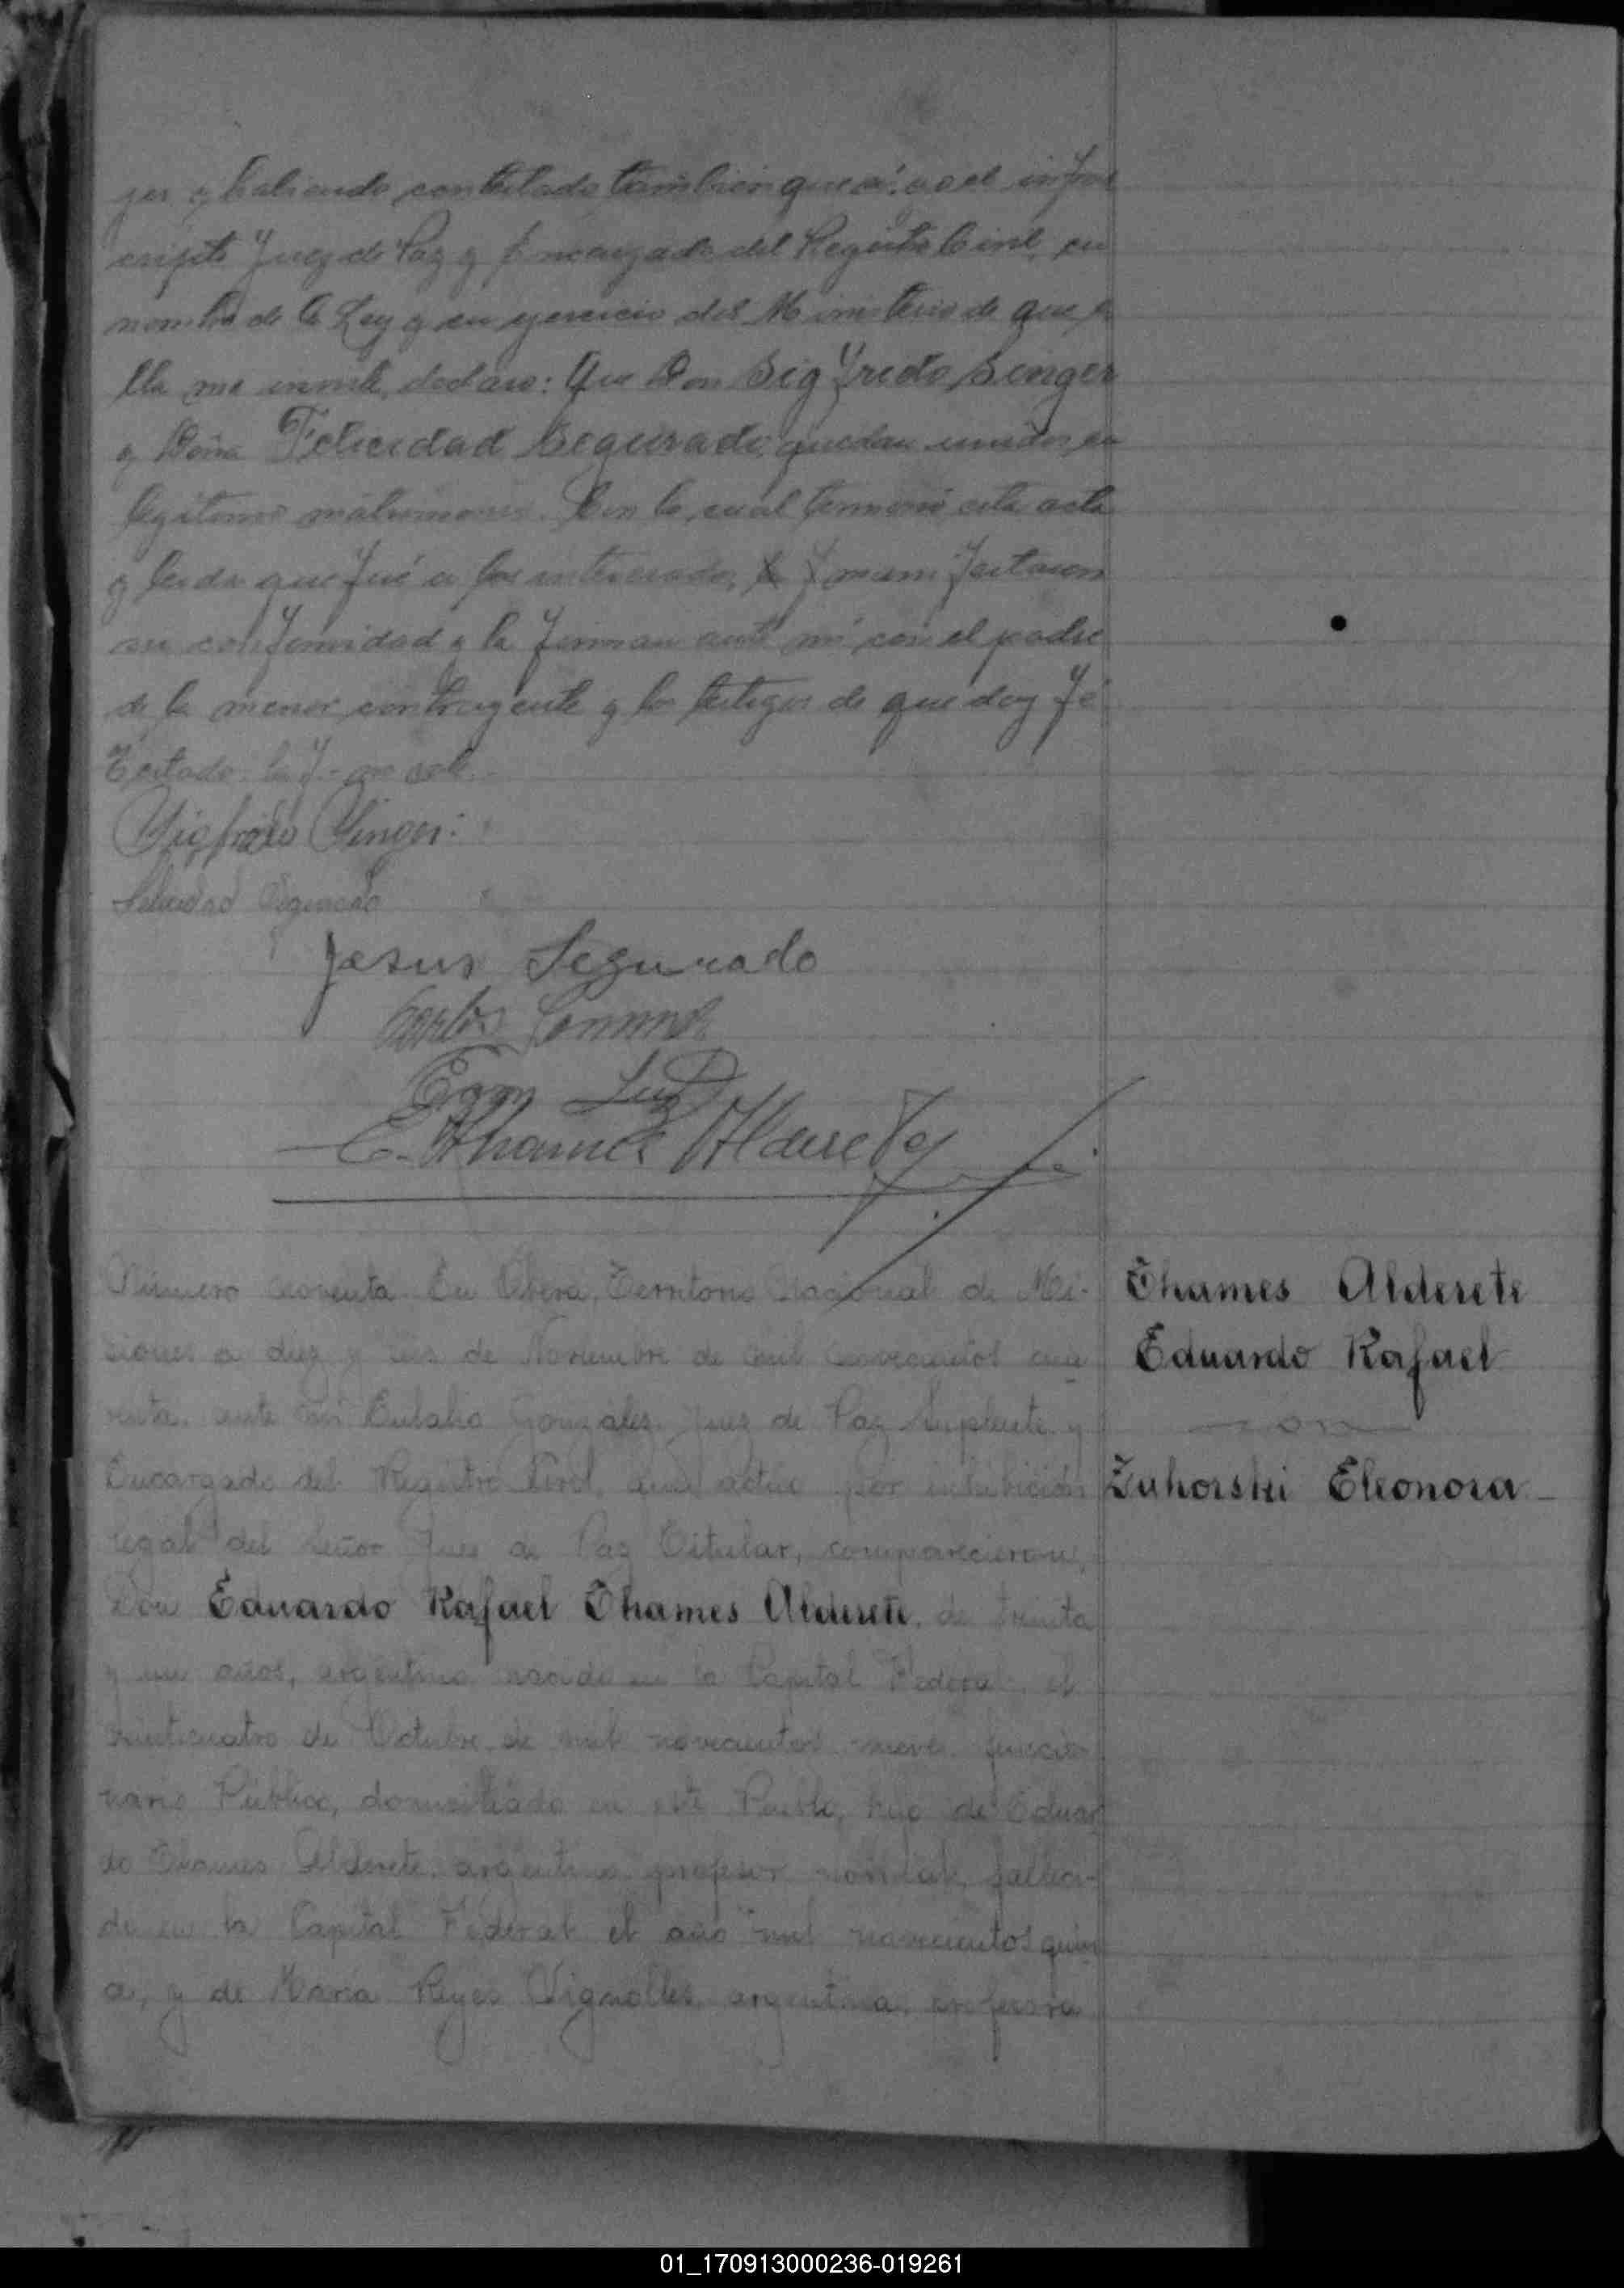 jer y habiendo contestado tambien que sí: yo el infras
cripto Juez de Paz y Encargado del Registro Civil, en
nombre de la Ley y en ejercicio del Ministerio de que e
lla me inviste, declaro: Que Don Sigfredo Singer
y Doña Felicidad Segurado, quedan unidos en
legitimo matrimonio. Con lo cual terminó esta acta
y leida que fué a los interesados, manifestaron
su conformidad y la firman ante mi con el padre
de la menor contrayente y los testigos de que doy fé
Testado: la f- no vale.
Sigfredo Singer
Felicidad Segurado
Jesus Segurado
Carlos
Egon
E. Thames Alderete
Número noventa. En Oberá, Territorio Nacional de Mi-
siones a diez y seis de Noviembre de mil novecientos cua
renta, ante mi Eulalio González, Juez de Paz Suplente y
Encargado del Registro Civil, que actúo por inhibición
legal del Señor Juez de Paz Titular, comparecieron,
Don Eduardo Rafael Thames Alderete, de treinta
y un años, argentino nacido en la Capital Federal, el
veinticuatro de Octubre de mil novecientos nueve, funcio
nario Público, domiciliado en este Pueblo, hijo de Eduar
do Thames Alderete, argentino, profesor normal, falleci-
do en la Capital Federal el año mil novecientos quin
ce, y de María Reyes Vignolles, argentina, profesora
Thames Alderete
Eduardo Rafael
con
Zuhorski Eleonora
01_170913000236-019261